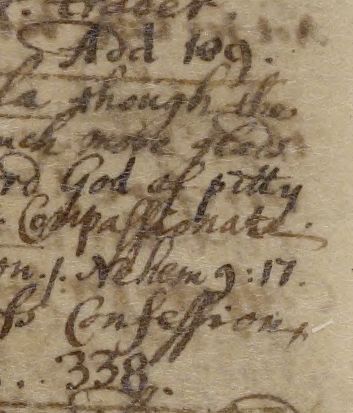 r. trader.
Add 109.
la though the
uch more glad
rd God of pitty
Compassionate.
on. j. Nehem 9:17.
ss Confession,
.. 338.